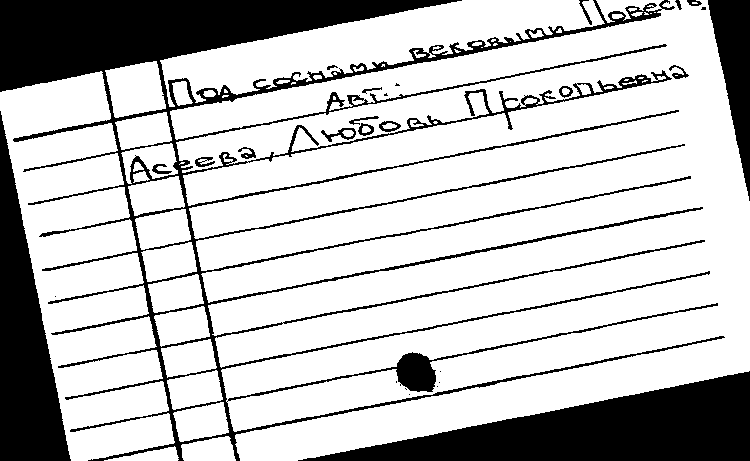 Под соснами вековыми Повесть.
Авт.:
Асеева, Любовь Прокопьевна